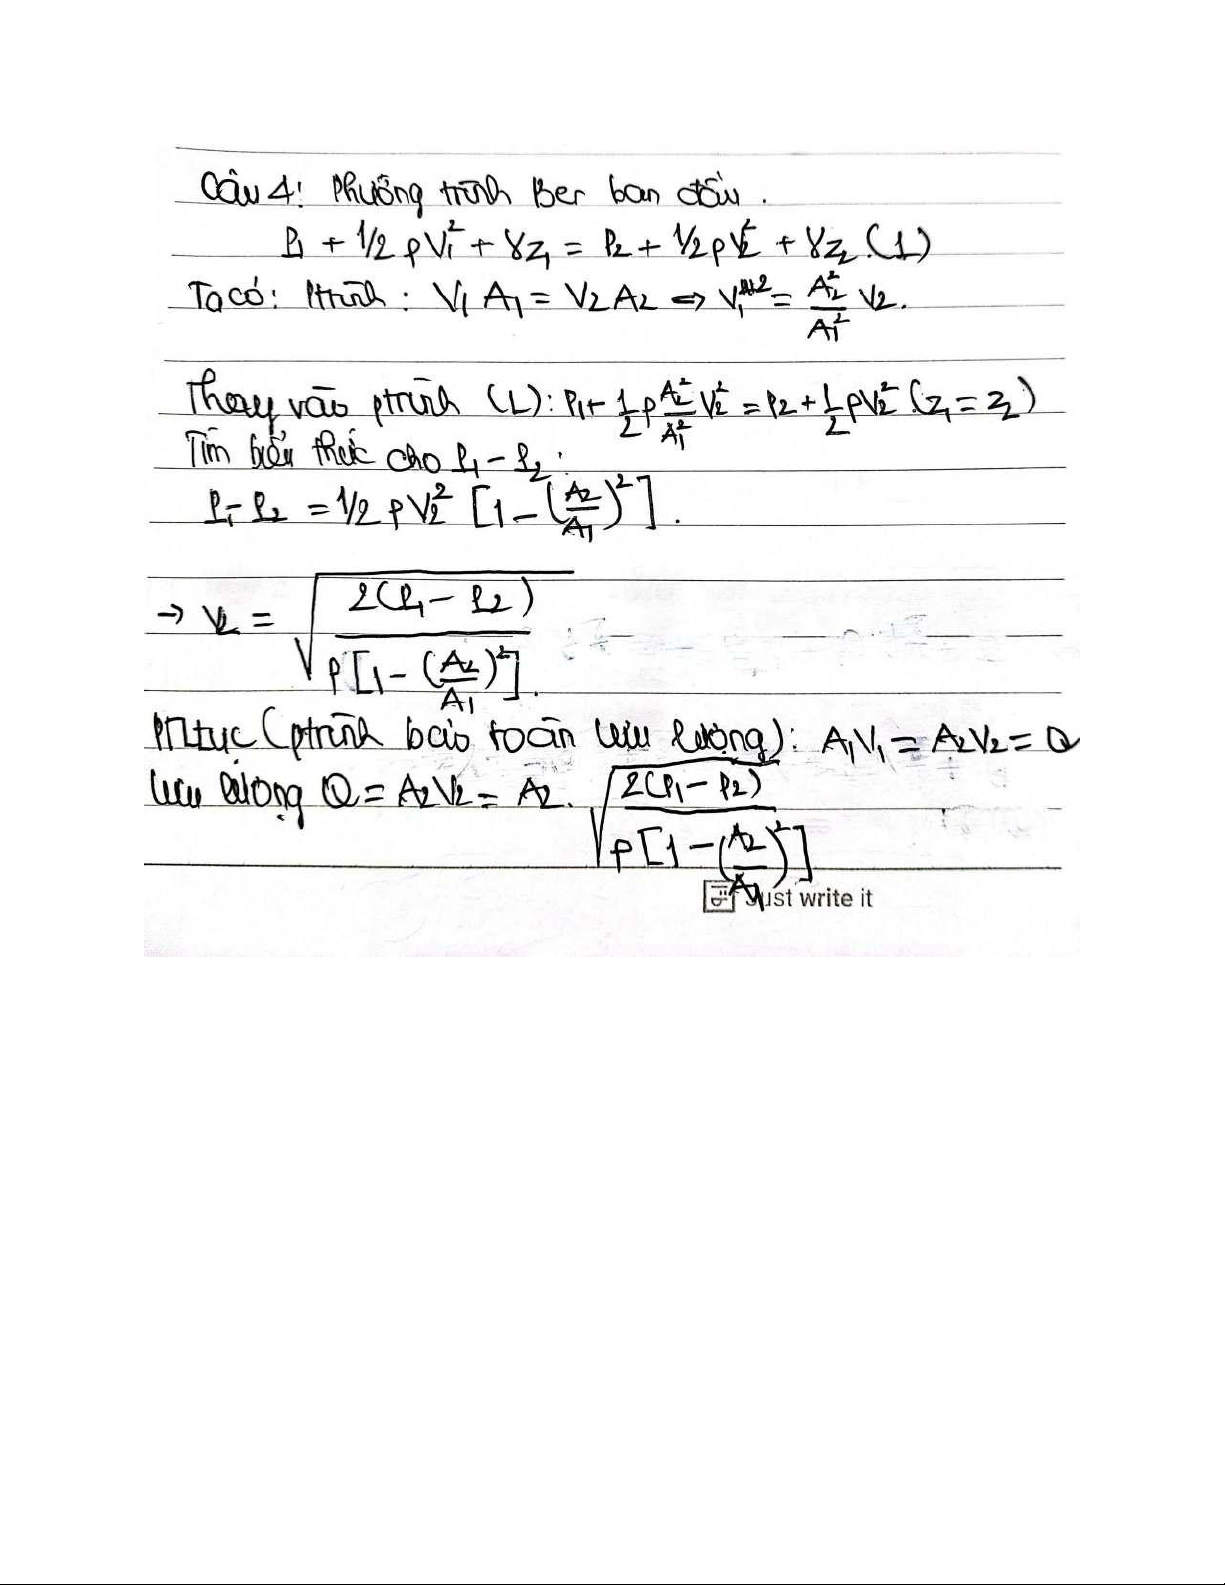 Câu 4: Phương trình Ber ban đầu.
P₁ + 1/2 ρV₁² + γz₁ = P₂ + 1/2 ρV₂² + γz₂ (1)
Ta có: Ptrình: V₁A₁ = V₂A₂ ⇔ V₁² = A₂²/A₁² V₂.
Thay vào ptrình (1): P₁ + 1/2 ρ A₂²/A₁² V₂² = P₂ + 1/2 ρV₂² (z₁ = z₂)
Tìm biểu thức cho P₁ - P₂:
P₁ - P₂ = 1/2 ρV₂² [1 - (A₂/A₁)²].
→ V₂ = √(2(P₁ - P₂) / ρ[1 - (A₂/A₁)²]).
PTLtục (ptrình bảo toàn lưu lượng): A₁V₁ = A₂V₂ = Q
lưu lượng Q = A₂V₂ = A₂. √(2(P₁ - P₂) / ρ[1 - (A₂/A₁)²])
Just write it